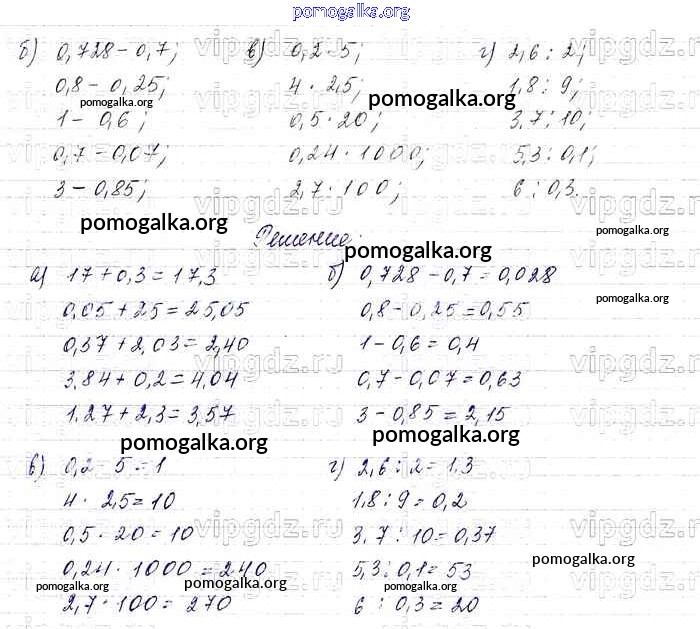 pomogalka.org
б) 0,728 - 0,7; в) 0,2 · 5; г) 2,6 : 2;
0,8 - 0,25; 4 · 2,5; 1,8 : 9;
1 - 0,6; 0,5 · 20; 3,7 : 10;
0,7 - 0,07; 0,24 · 1000; 5,3 : 0,1;
3 - 0,85; 2,7 · 100; 6 : 0,3.
Решение:
а) 17 + 0,3 = 17,3 б) 0,728 - 0,7 = 0,028
0,05 + 25 = 25,05 0,8 - 0,25 = 0,55
0,37 + 2,03 = 2,40 1 - 0,6 = 0,4
3,84 + 0,2 = 4,04 0,7 - 0,07 = 0,63
1.27 + 2,3 = 3,57 3 - 0,85 = 2,15
в) 0,2 · 5 = 1 г) 2,6 : 2 = 1,3
4 · 2,5 = 10 1,8 : 9 = 0,2
0,5 · 20 = 10 3,7 : 10 = 0,37
0,24 · 1000 = 240 5,3 : 0,1 = 53
2,7 · 100 = 270 6 : 0,3 = 20